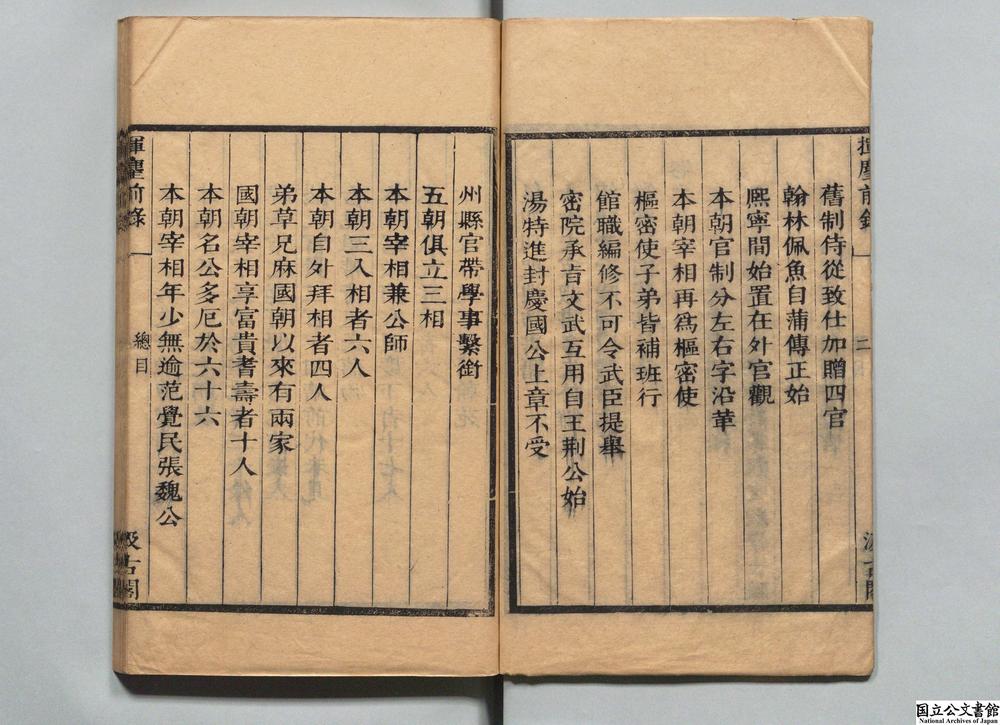 揮麈前錄
二
汲古閣
舊制侍從致仕加贈四官
翰林佩魚自蒲傳正始
熙寧間始置在外官觀
本朝官制分左右字沿革
本朝宰相再爲樞密使
樞密使子弟皆補班行
館職編修不可令武臣提舉
密院承㫖文武互用自王荆公始
湯特進封慶國公上章不受
州縣官帶學事繫銜
五朝俱立三相
本朝宰相兼公師
本朝三入相者六人
本朝自外拜相者四人
弟草兄麻國朝以來有兩家
國朝宰相享富貴耆壽者十人
本朝名公多厄於六十六
本朝宰相年少無逾范覺民張魏公
揮麈前錄
總目
汲古閣
国立公文書館
National Archives of Japan